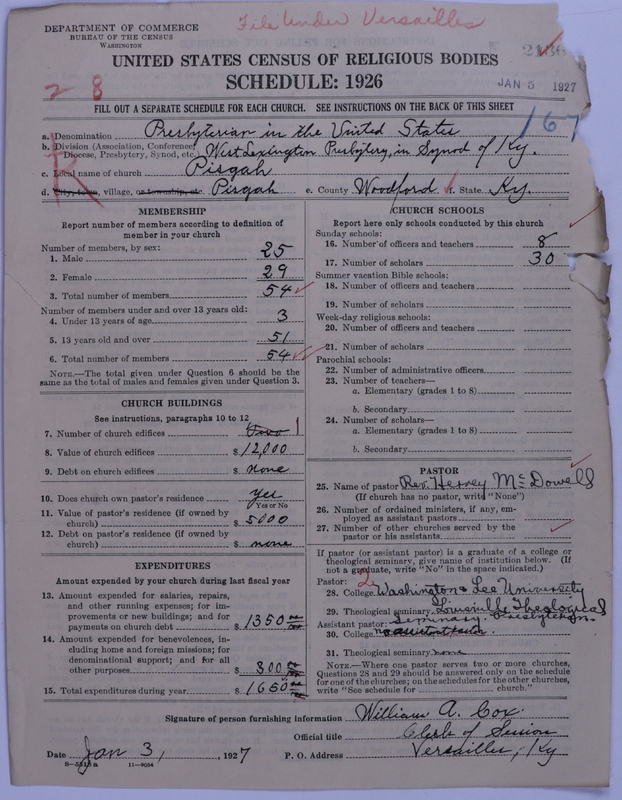 File Under Versailles
DEPARTMENT OF COMMERCE
BUREAU OF THE CENSUS
WASHINGTON
UNITED STATES CENSUS OF RELIGIOUS BODIES
SCHEDULE: 1926
JAN 5 1927
2 8
FILL OUT A SEPARATE SCHEDULE FOR EACH CHURCH. SEE INSTRUCTIONS ON THE BACK OF THIS SHEET
167
R
a. Denomination Presbyterian in the United States
b. Division (Association, Conference, Diocese, Presbytery, Synod, etc.) West Lexington Presbytery, in Synod of Ky.
c. Local name of church Pisgah
d. City, town, village, or township, etc. Pisgah e. County Woodford f. State Ky.
MEMBERSHIP
Report number of members according to definition of member in your church
Number of members, by sex:
1. Male 25
2. Female 29
3. Total number of members 54
Number of members under and over 13 years old:
4. Under 13 years of age 3
5. 13 years old and over 51
6. Total number of members 54
NOTE.—The total given under Question 6 should be the same as the total of males and females given under Question 3.
CHURCH BUILDINGS
See instructions, paragraphs 10 to 12
7. Number of church edifices Two 1
8. Value of church edifices $ 12,000
9. Debt on church edifices $ none
10. Does church own pastor's residence? Yes
Yes or No
11. Value of pastor's residence (if owned by church) $ 5000
12. Debt on pastor's residence (if owned by church) $ none
EXPENDITURES
Amount expended by your church during last fiscal year
13. Amount expended for salaries, repairs, and other running expenses; for improvements or new buildings; and for payments on church debt $ 1350
14. Amount expended for benevolences, including home and foreign missions; for denominational support; and for all other purposes $ 300
15. Total expenditures during year $ 1650
CHURCH SCHOOLS
Report here only schools conducted by this church
Sunday schools:
16. Number of officers and teachers 8
17. Number of scholars 30
Summer vacation Bible schools:
18. Number of officers and teachers
19. Number of scholars
Week-day religious schools:
20. Number of officers and teachers
21. Number of scholars
Parochial schools:
22. Number of administrative officers
23. Number of teachers—
a. Elementary (grades 1 to 8)
b. Secondary
24. Number of scholars—
a. Elementary (grades 1 to 8)
b. Secondary
PASTOR
25. Name of pastor Rev. Hervey McDowell
(If church has no pastor, write "None")
26. Number of ordained ministers, if any, employed as assistant pastors
27. Number of other churches served by the pastor or his assistants
If pastor (or assistant pastor) is a graduate of a college or theological seminary, give name of institution below. (If not a graduate, write "No" in the space indicated.)
Pastor:
28. College Washington & Lee University
29. Theological seminary Louisville Theological Seminary. Presbyterian
Assistant pastor:
30. College no assistant pastor
31. Theological seminary none
NOTE.—Where one pastor serves two or more churches, Questions 28 and 29 should be answered only on the schedule for one of the churches; on the schedules for the other churches, write "See schedule for church."
Signature of person furnishing information William A. Cox.
Official title Clerk of Session
Date Jan 3, 1927 P. O. Address Versailles, Ky
11—9054